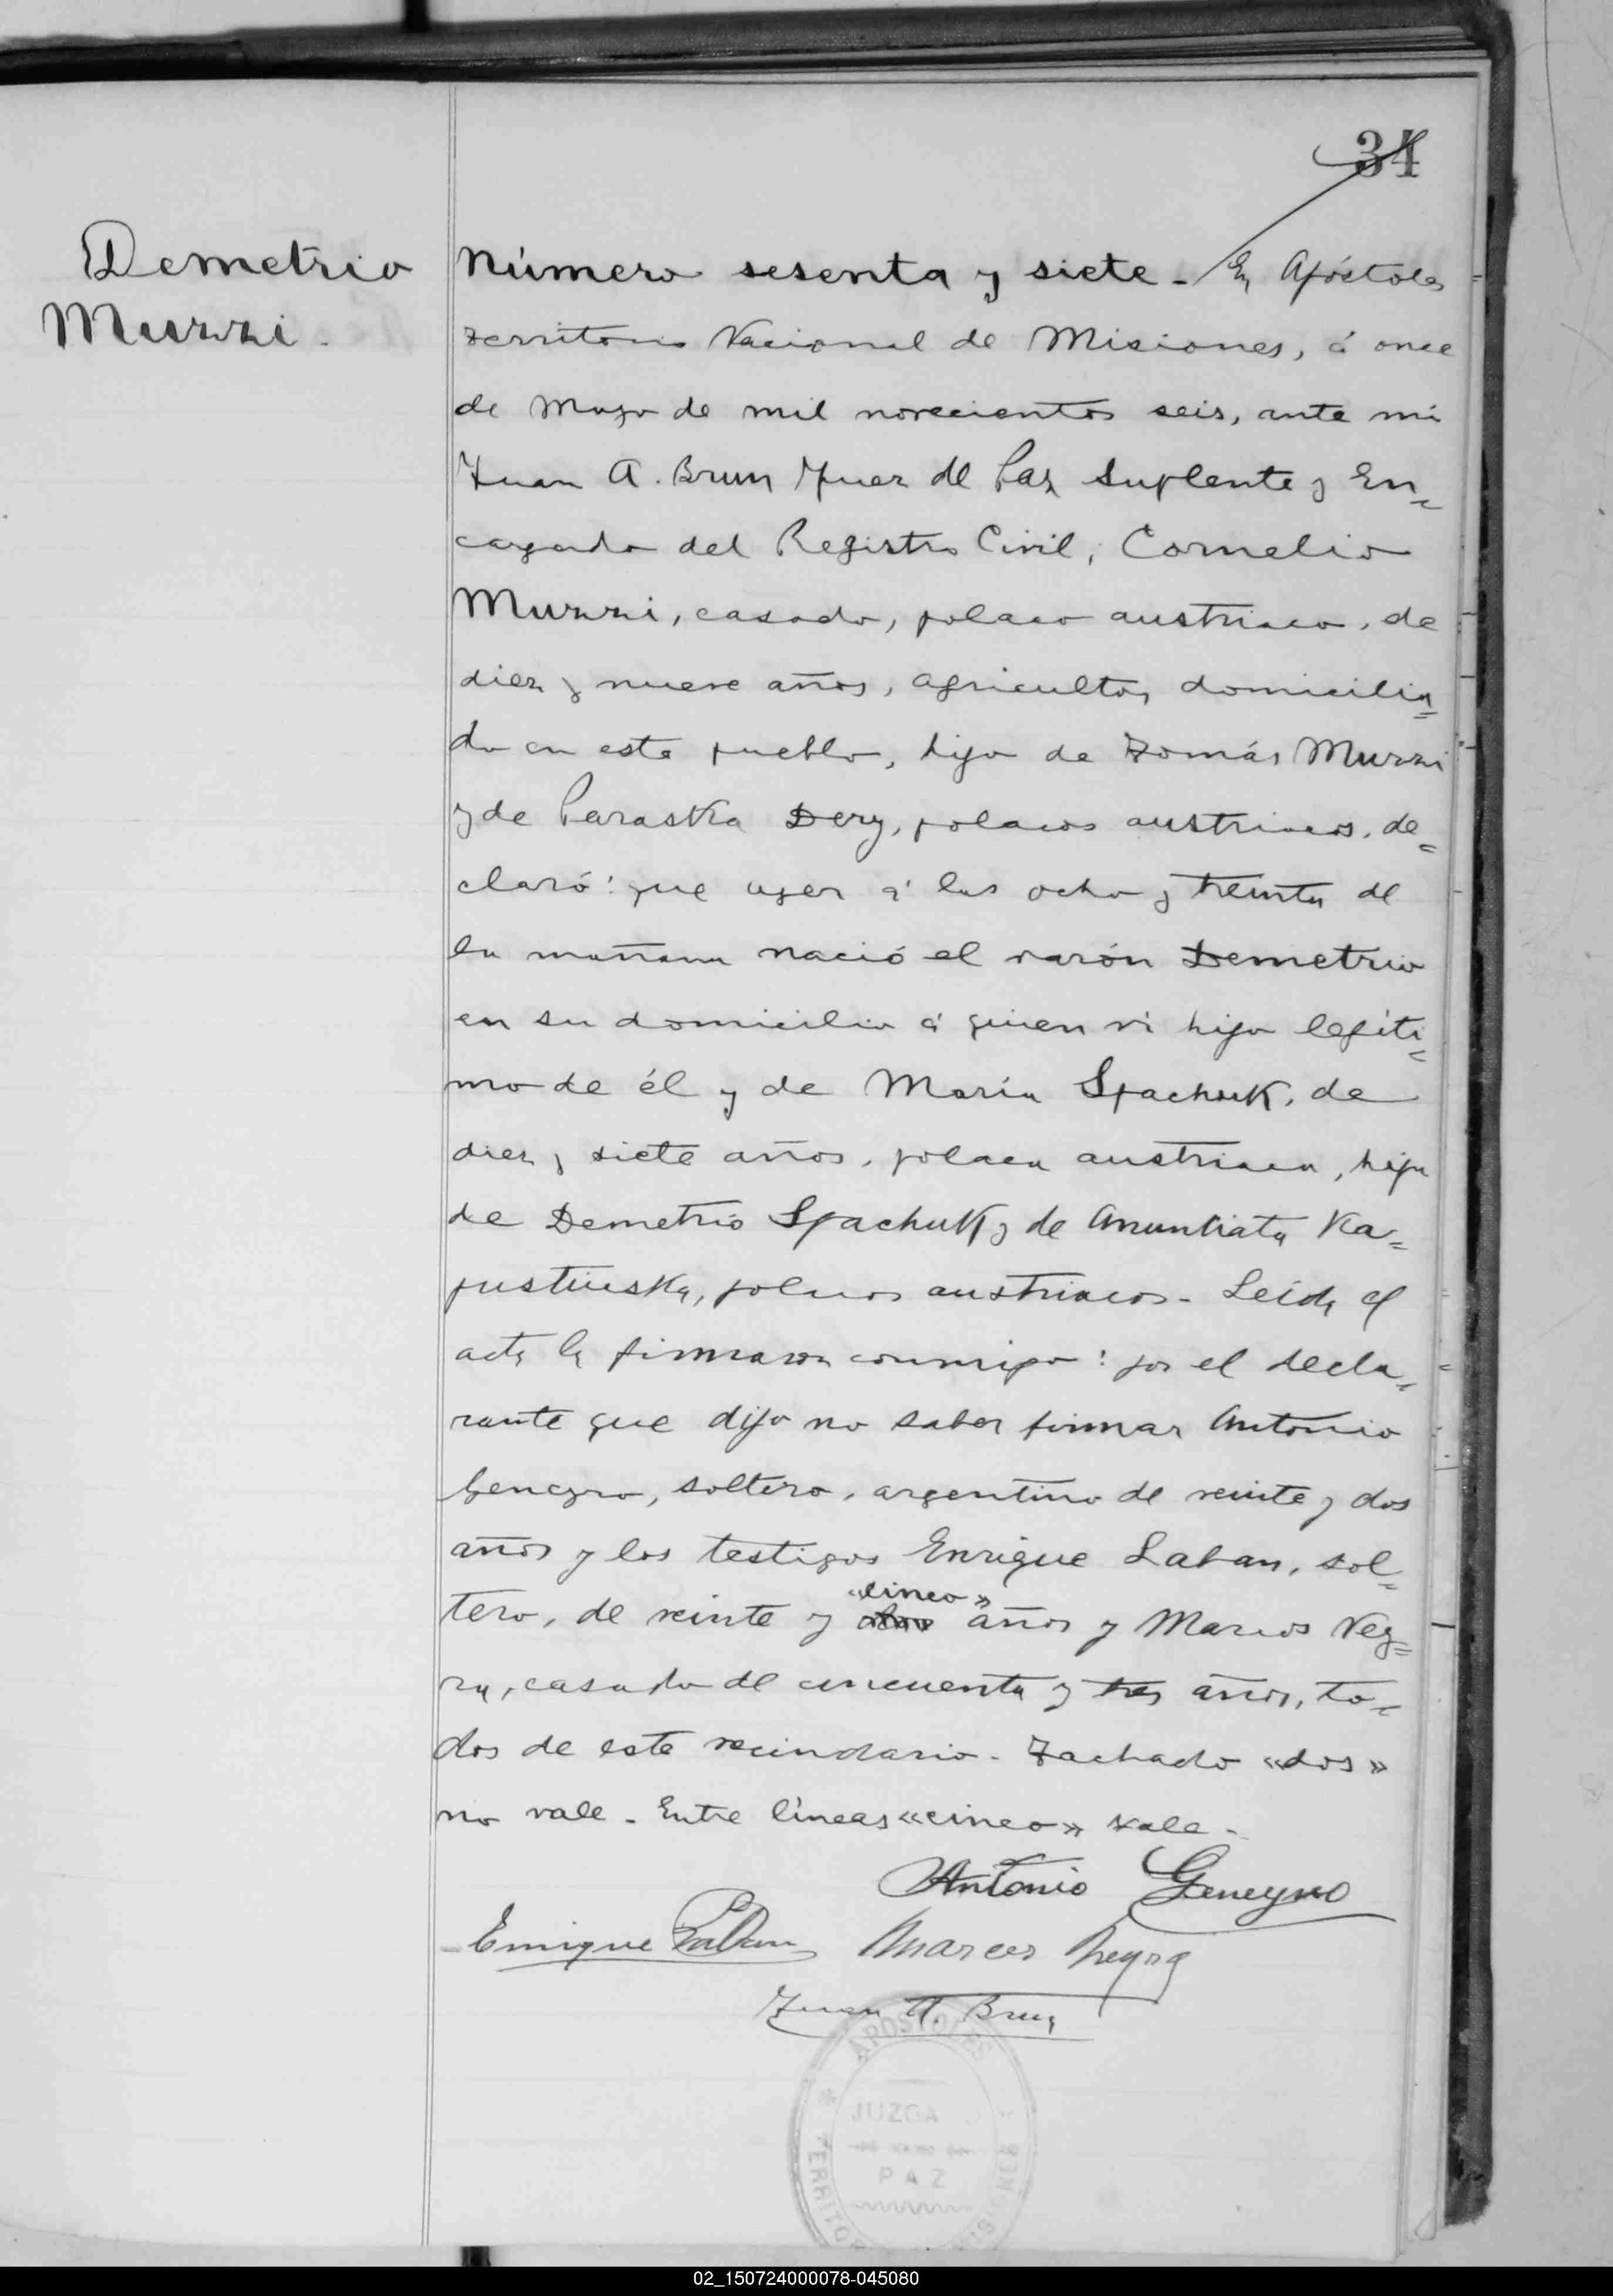 34
Demetrio
Muzzi.
Número sesenta y siete. En Apóstoles
Territorio Nacional de Misiones, á once
de Mayo de mil novecientos seis, ante mi
Juan A. Brun Juez de Paz Suplente y En=
cargado del Registro Civil, Cornelio
Muzzi, casado, polaco austriaco, de
diez y nueve años, agricultor, domicilia=
do en este pueblo, hijo de Tomás Muzzi
y de Paraska Dery, polacos austriacos, de=
claró: que ayer á las ocho y treinta de
la mañana nació el varón Demetrio
en su domicilio á quien vi hijo legíti=
mo de él y de María Spachuk, de
diez y siete años, polaca austriaca, hija
de Demetrio Spachuk y de Anuntiata Ka=
pustiuska, polacos austriacos. Leida el
acta la firmaron conmigo: por el decla=
rante que dijo no saber firmar Antonio
Geneyro, soltero, argentino de veinte y dos
años y los testigos Enrique Laban, sol=
tero, de veinte y dos «cinco» años y Marcos Ney=
ra, casado de cincuenta y tres años, to=
dos de este vecindario. Tachado «dos»
no vale. Entre líneas «cinco» vale.
Antonio Geneyro
Enrique Laban Marcos Neyra
Juan A. Brun
APOSTOLES
JUZGA
PAZ
TERRITO
MISIONES
02_150724000078-045080